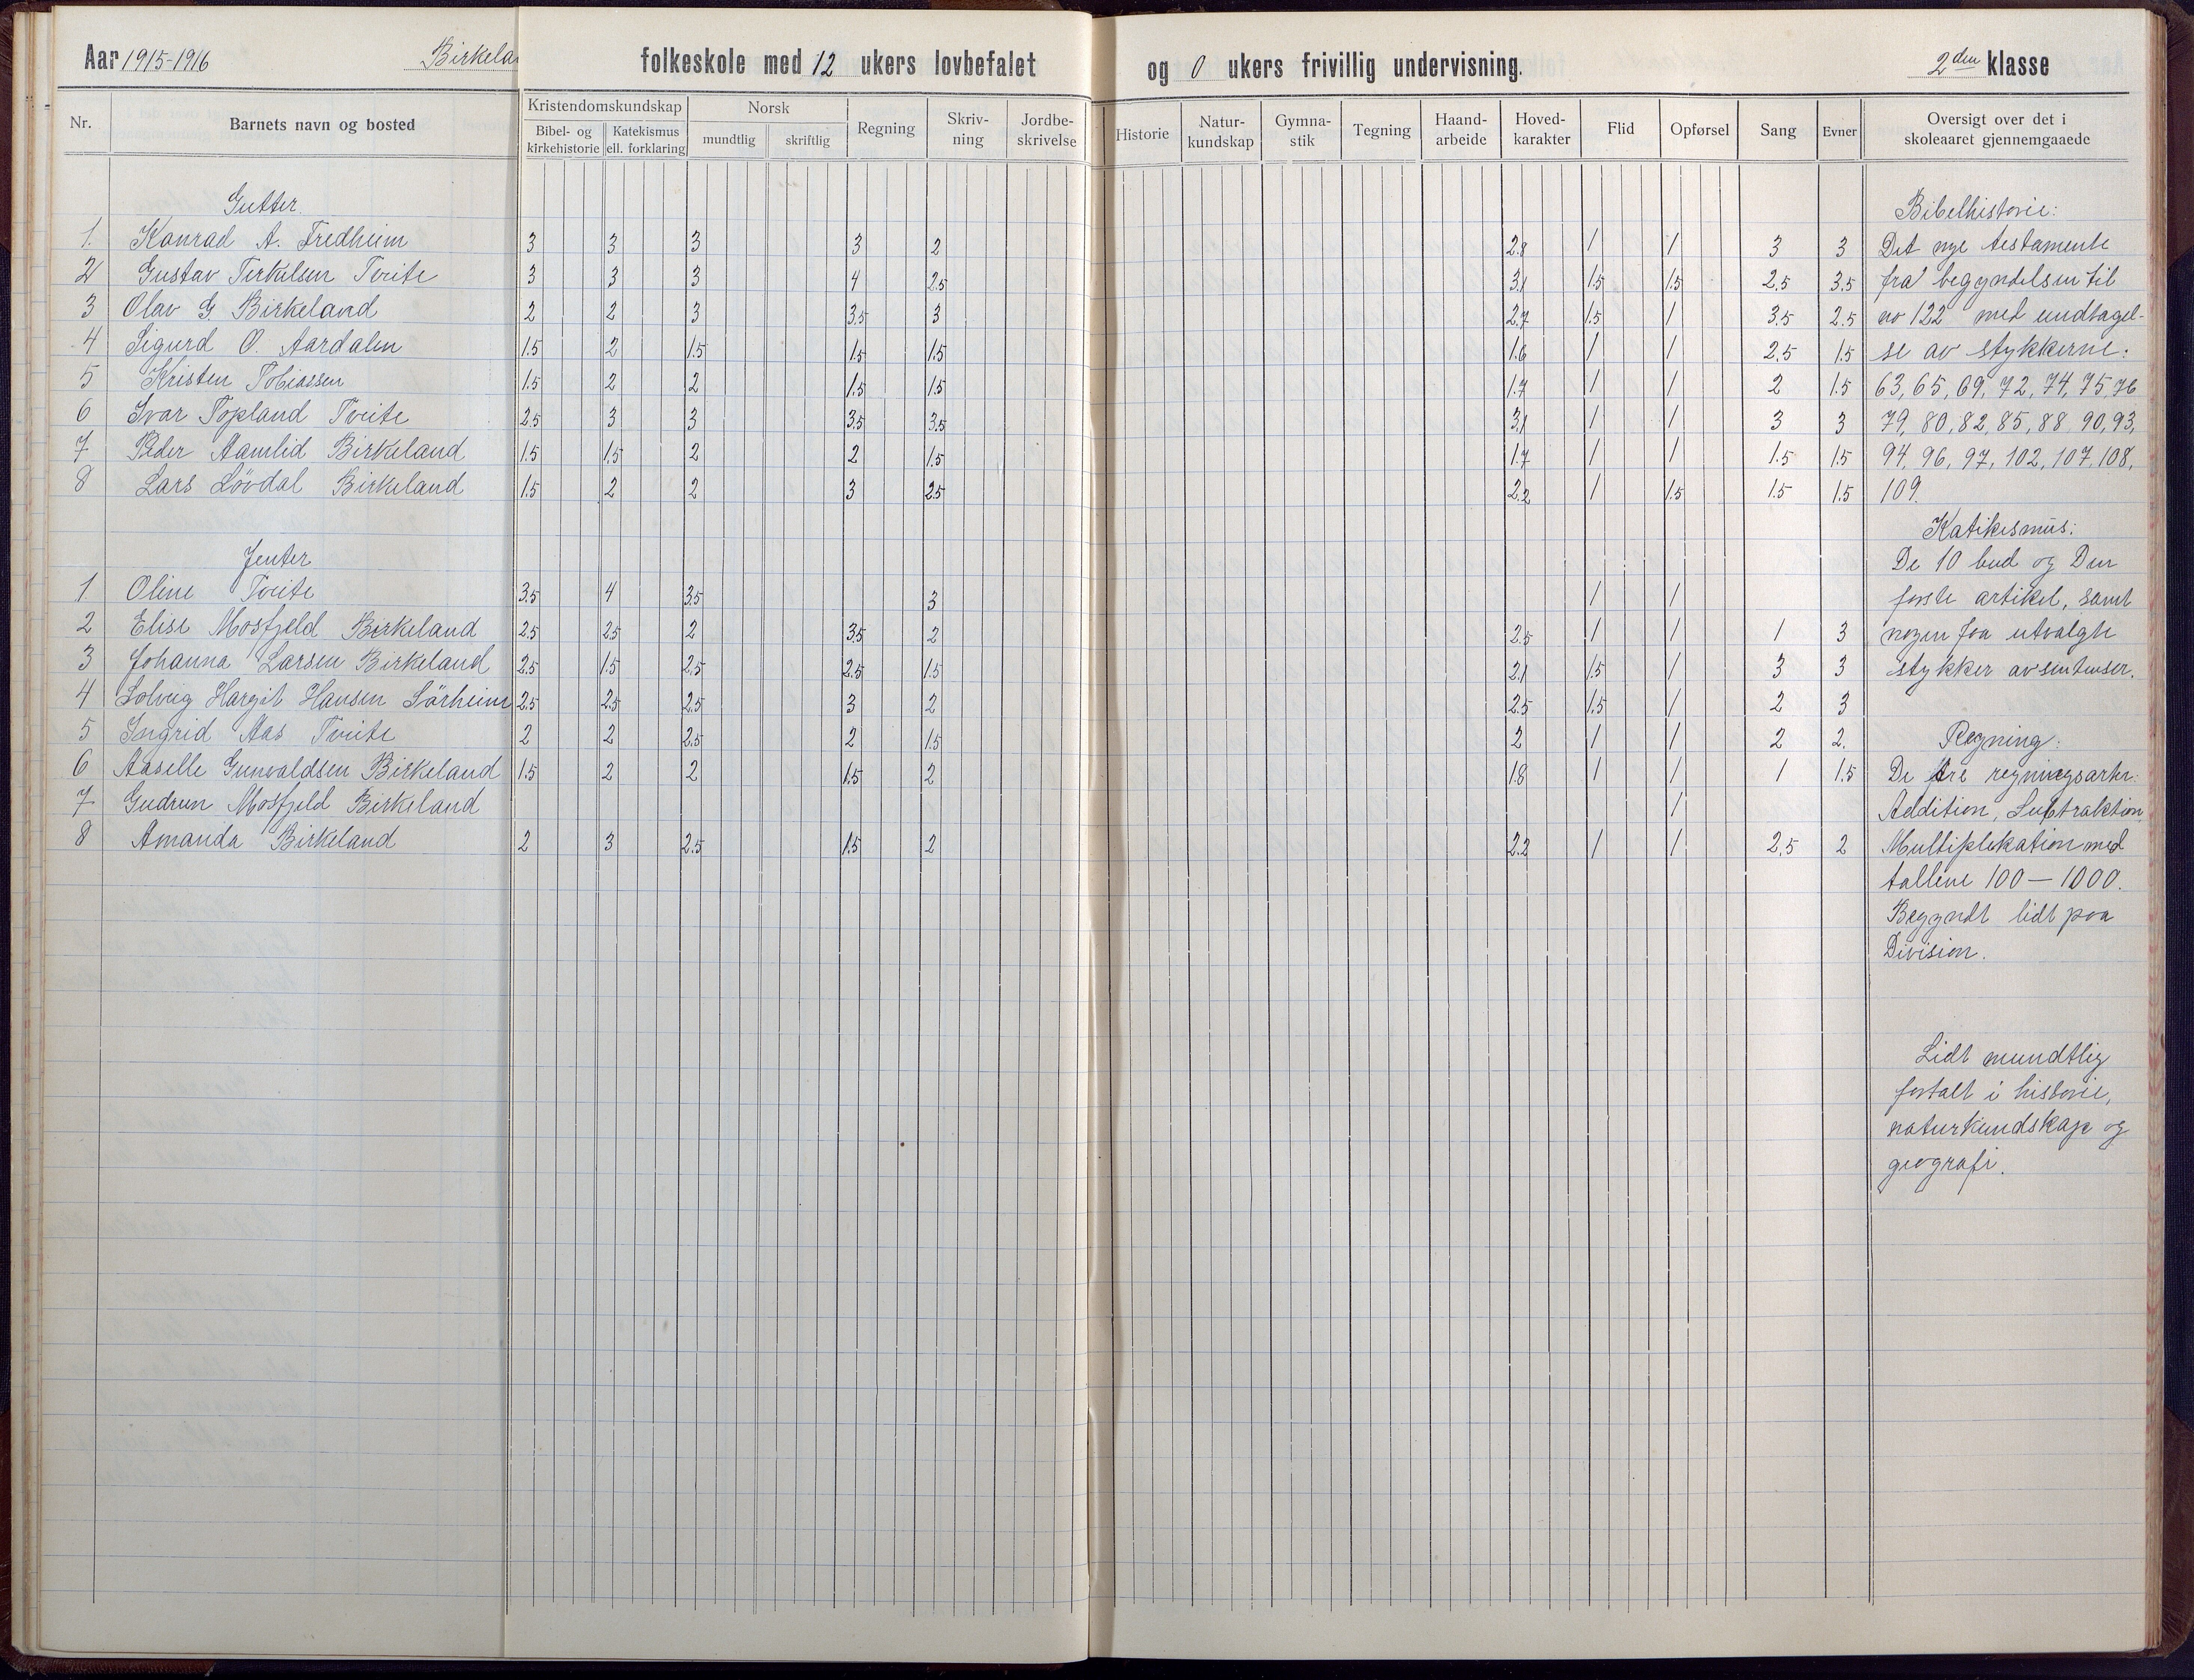 Aar 1915-1916 Birkela folkeskole med 12 ukers lovbefalet og 0 ukers frivillig undervisning. 2den klasse
Nr. Barnets navn og bosted Kristendomskundskap Bibel- og kirkehistorie Katekismus ell. forklaring Norsk mundtlig skriftlig Regning Skriv-ning Jordbe-skrivelse Historie Natur-kundskap Gymna-stik Tegning Haand-arbeide Hoved-karakter Flid Opførsel Sang Evner Oversigt over det i skoleaaret gjennemgaaede
Gutter
1. Konrad A. Fredheim 3 3 3 3 2 2.8 1 1 3 3
2 Gustav Terkelsen Tveite 3 3 3 4 2.5 3.1 1.5 1.5 2.5 3.5
3 Olav G. Birkeland 2 2 3 3.5 3 2.7 1.5 1 3.5 2.5
4 Sigurd O. Aardalen 1.5 2 1.5 1.5 1.5 1.6 1 1 2.5 1.5
5 Kristen Tobiassen 1.5 2 2 1.5 1.5 1.7 1 1 2 1.5
6 Ivar Topland Tveite 2.5 3 3 3.5 3.5 3.1 1 1 3 3
7 Peder Aamlid Birkeland 1.5 1.5 2 2 1.5 1.7 1 1 1.5 1.5
8 Lars Lövdal Birkeland 1.5 2 2 3 2.5 2.2 1 1.5 1.5 1.5
Jenter
1 Oline Tveite 3.5 4 3.5 3 1 1
2 Elise Mosfjeld Birkeland 2.5 2.5 2 3.5 2 2.5 1 1 1 3
3 Johanna Larsen Birkeland 2.5 1.5 2.5 2.5 1.5 2.1 1.5 1 3 3
4 Solveig Hargit Hansen Sörheim 2.5 2.5 2.5 3 2 2.5 1.5 1 2 3
5 Ingrid Aas Tveite 2 2 2.5 2 1.5 2 1 1 2 2.
6 Aaselle Gunvaldsen Birkeland 1.5 2 2 1.5 2 1.8 1 1 1 1.5
7 Gudrun Mosfjeld Birkeland 1
8 Amanda Birkeland 2 3 2.5 1.5 2 2.2 1 1 2.5 2
Bibelhistorie:
Det nye testamente
fra begyndelsen til
no 122 med undtagel-
se av stykkerne:
63, 65, 69, 72, 74, 75, 76
79, 80, 82, 85, 88, 90, 93,
94, 96, 97, 102, 107, 108,
109.
Katikesmus:
De 10 bud og Den
første artikel, samt
nogen faa utvalgte
stykker av sentenser.
Regning:
De tre regningsarter:
Addition, Subtraktion
Multiplekation med
tallene 100 — 1000.
Begyndt lidt paa
Division.
Lidt mundtlig
fortalt i historie,
naturkundskap og
geografi.